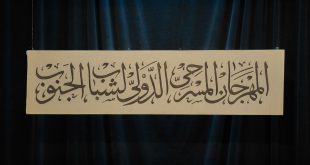 المهرجان المسرحي الدولي لشباب الجنوب